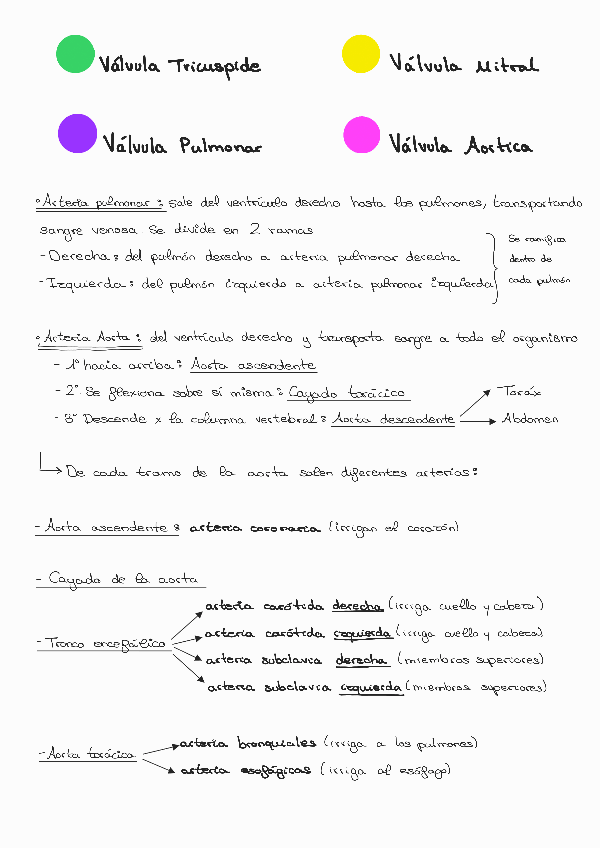 Válvula Tricuspide
Válvula Mitral
Válvula Pulmonar
Válvula Aortica
• Arteria pulmonar: sale del ventrículo derecho hasta los pulmones, transportando
sangre venosa. Se divide en 2 ramas
- Derecha: del pulmón derecho a arteria pulmonar derecha
- Izquierda: del pulmón izquierdo a arteria pulmonar izquierda
Se ramifica
dentro de
cada pulmón
• Arteria Aorta: del ventrículo derecho y transporta sangre a todo el organismo
- 1º hacia arriba: Aorta ascendente
- 2º Se flexiona sobre sí misma: Cayado torácico
- 3º Descende x la columna vertebral: Aorta descendente
Toráx
Abdomen
De cada tramo de la aorta salen diferentes arterias:
- Aorta ascendente: arteria coronaria (irrigan el corazón)
- Cayado de la aorta
- Tronco encefálico
arteria carótida derecha (irriga cuello y cabeza)
arteria carótida izquierda (irriga cuello y cabeza)
arteria subclavia derecha (miembros superiores)
arteria subclavia izquierda (miembros superiores)
- Aorta torácica
arteria bronquiales (irriga a los pulmones)
arteria esofágicas (irriga al esófago)